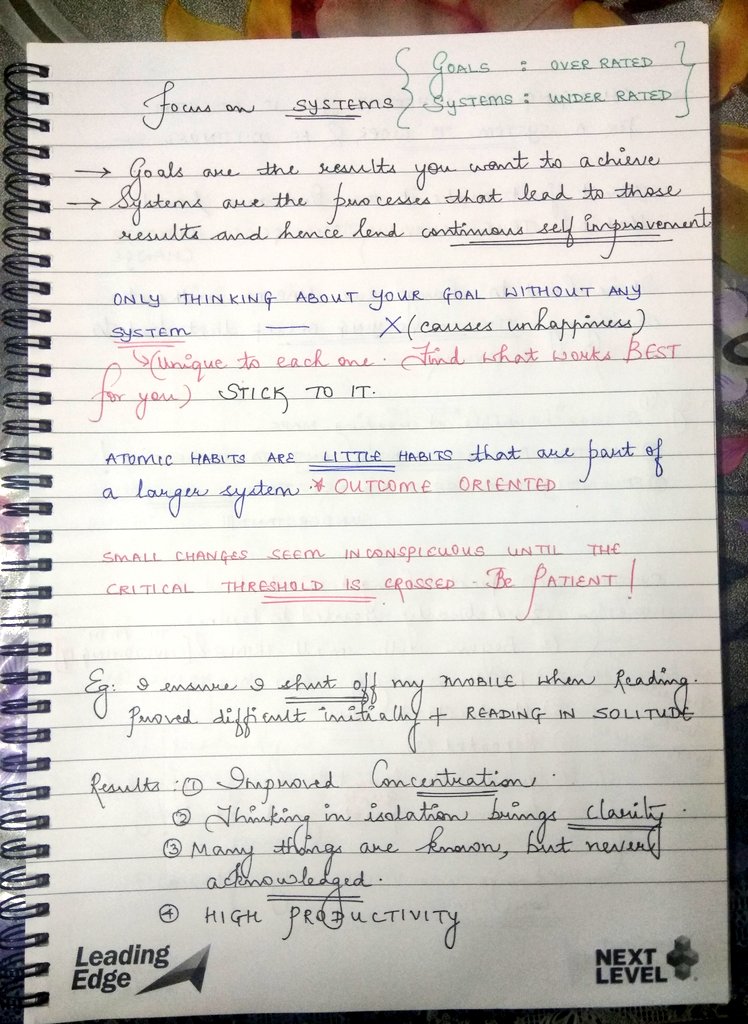 Focus on SYSTEMS { GOALS : OVER RATED
SYSTEMS : UNDER RATED }
→ Goals are the results you want to achieve
→ Systems are the processes that lead to those
results and hence lend continuous self improvement
ONLY THINKING ABOUT YOUR GOAL WITHOUT ANY
SYSTEM — X (causes unhappiness)
↳ (unique to each one. Find what works BEST
for you) STICK TO IT.
ATOMIC HABITS ARE LITTLE HABITS that are part of
a larger system * OUTCOME ORIENTED
SMALL CHANGES SEEM INCONSPICUOUS UNTIL THE
CRITICAL THRESHOLD IS CROSSED. Be PATIENT!
Eg: I ensure I shut off my MOBILE when Reading.
Proved difficult initially + READING IN SOLITUDE
Results : ① Improved Concentration.
② Thinking in isolation brings clarity.
③ Many things are known, but never
acknowledged.
④ HIGH PRODUCTIVITY
Leading
Edge
NEXT
LEVEL